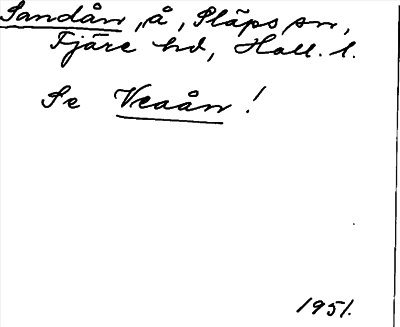 Sandån, å, Släps sn,
Fjäre hd, Hall. l.
Se Veaån!
1951.